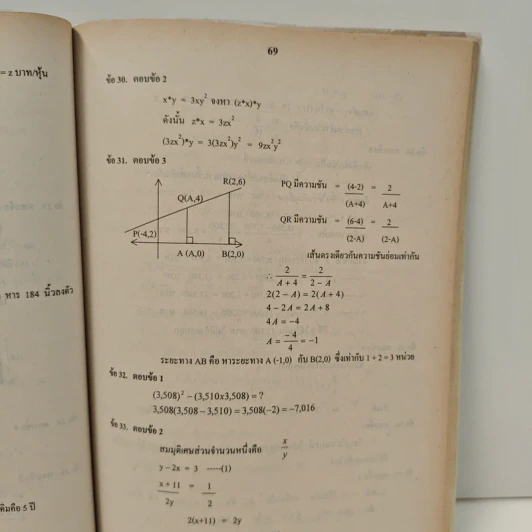 = z บาท/หุ้น
หาร 184 นิ้วลงตัว
คิมคือ 5 ปี
69
ข้อ 30. ตอบข้อ 2
x*y = 3xy² จงหา (z*x)*y
ดังนั้น z*x = 3zx²
(3zx²)*y = 3(3zx²)y² = 9zx²y²
ข้อ 31. ตอบข้อ 3
R(2,6)
Q(A,4)
P(-4,2)
A (A,0)
B(2,0)
PQ มีความชัน = (4-2)/(A+4) = 2/A+4
QR มีความชัน = (6-4)/(2-A) = 2/(2-A)
เส้นตรงเดียวกันความชันย่อมเท่ากัน
∴ 2/A + 4 = 2/2 - A
2(2 - A) = 2(A + 4)
4 - 2A = 2A + 8
4A = -4
A = -4/4 = -1
ระยะทาง AB คือ หาระยะทาง A (-1,0) กับ B(2,0) ซึ่งเท่ากับ 1 + 2 = 3 หน่วย
ข้อ 32. ตอบข้อ 1
(3,508)² - (3,510x3,508) = ?
3,508(3,508 - 3,510) = 3,508(-2) = -7,016
ข้อ 33. ตอบข้อ 2
สมมุติเศษส่วนจำนวนหนึ่งคือ x/y
y - 2x = 3 -----(1)
x + 11/2y = 1/2
2(x+11) = 2y